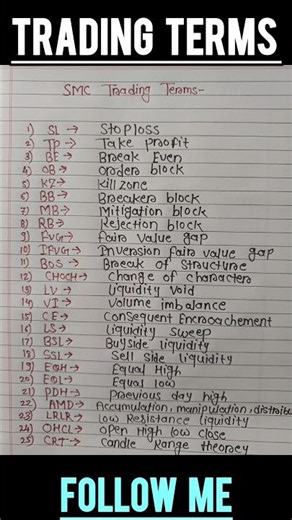 TRADING TERMS
SMC Trading Terms-
1) SL → Stoploss
2) TP → Take profit
3) BE → Break Even
4) OB → Orders block
5) KZ → Kill zone
6) BB → Breakers block
7) MB → Mitigation block
8) RB → Rejection block
9) FVG → fairs value gap
10) IFVG → Inversion fairs value gap
11) BOS → Breeck of Structure
12) CHOCH → Change of characters
13) LV → liquidity void
14) VI → volume imbalance
15) CE → Consequent Encroachement
16) LS → liquidity sweep
17) BSL → Buyside liquidity
18) SSL → Sell side liquidity
19) EQH → Equal High
20) EQL → Equal low
21) PDH → previous day high
22) AMD → Accumulation, manipulation, distribu
23) LRLR → Low Resistance liquidity
24) OHCL → Open High low close
25) CRT → Candle Range theorey
FOLLOW ME